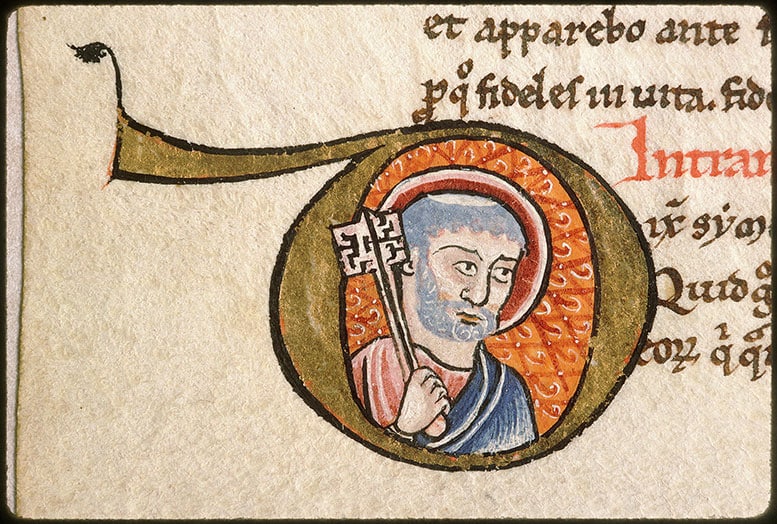 et apparebo ante
ꝓqͦ fideles in uita. fide
Intran
Dix̃ sym
Quid
coꝝ